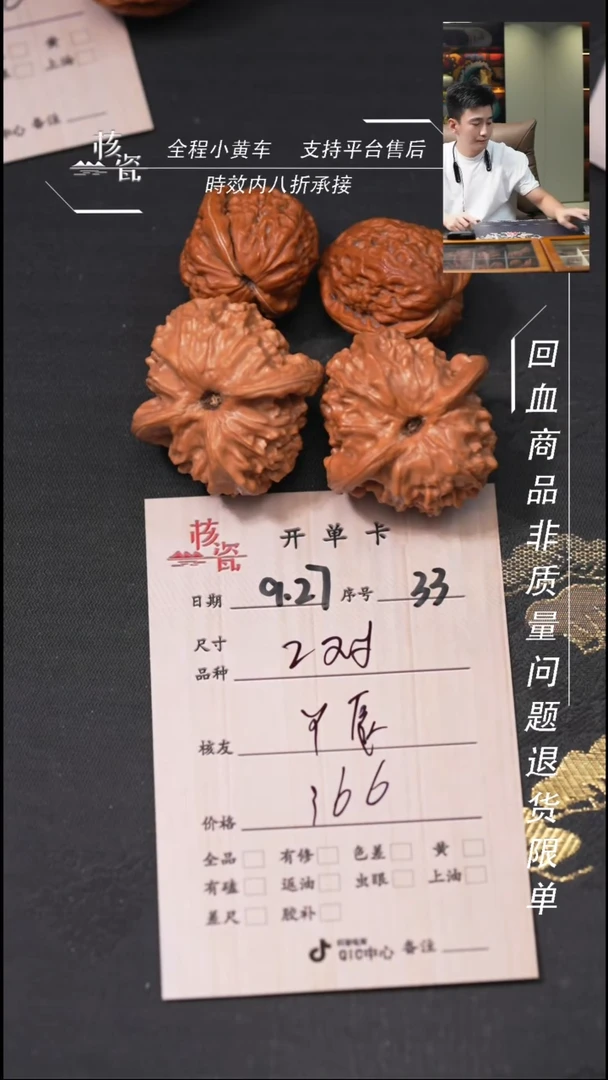 黄
上油
中心 备注
核瓷
全程小黄车 支持平台售后
時效内八折承接
回血商品非质量问题退货限单
核瓷
开单卡
日期 9.27 序号 33
尺寸
品种 2对
核友 甲辰
价格 366
全品 有修 色差 黄
有磕 返油 虫眼 上油
差尺 胶补
QIC中心 备注